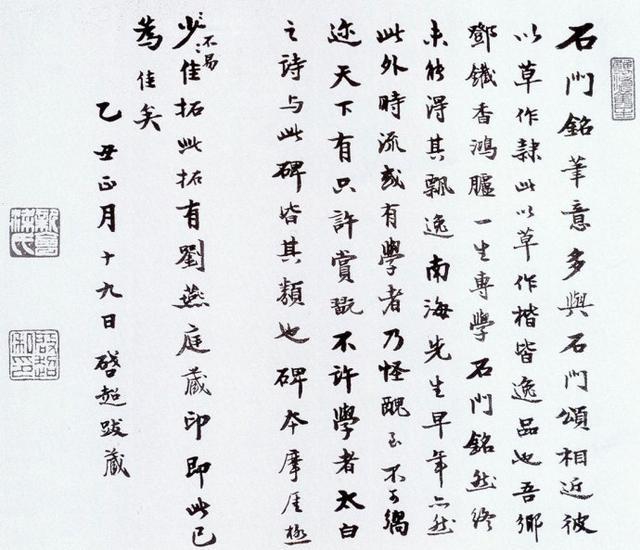 石門銘筆意多與石門頌相近彼
以草作隸此以草作楷皆逸品也吾鄉
鄧鐵香鴻臚一生專學石門銘然終
未能得其飄逸南海先生早年亦然
此外時流或有學者乃怪醜至不可嚮
迩天下有只許賞翫不許學者太白
之詩與此碑皆其類也碑本摩崖極
少不易佳拓此拓有劉燕庭藏印即此已
為佳矣
乙丑正月十九日 啓超跋藏
新會梁氏
啟超私印